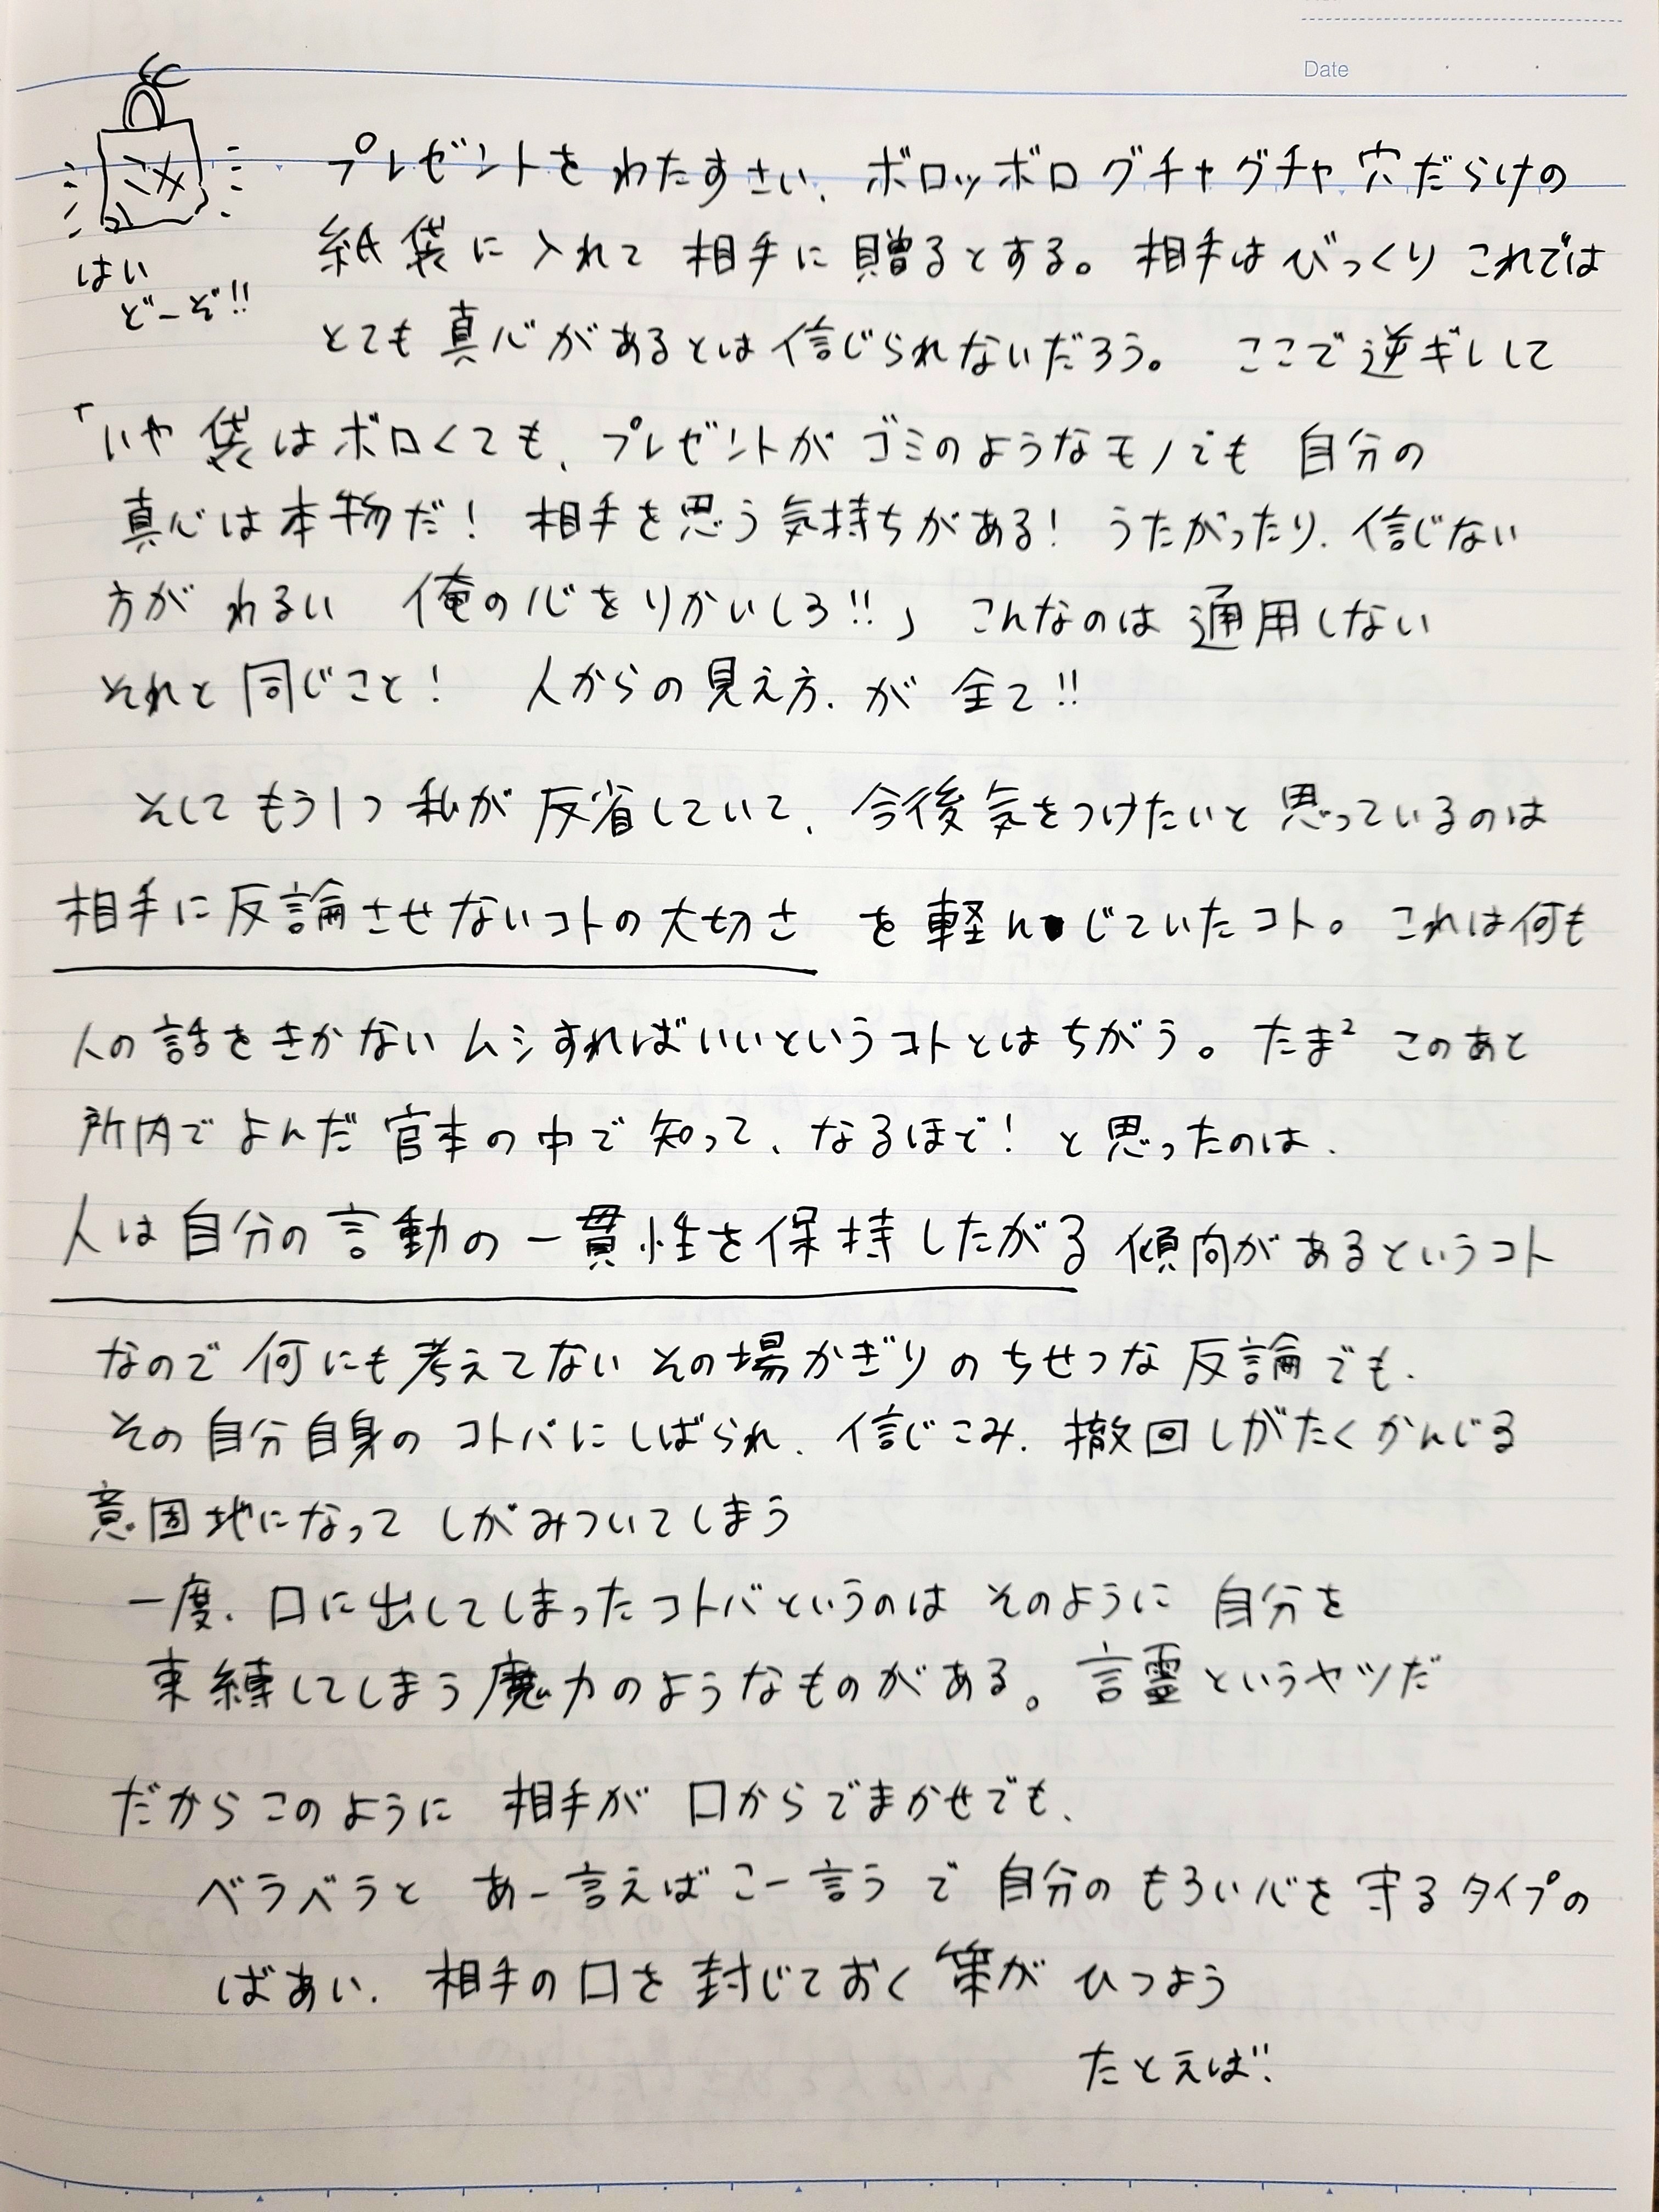 Date
プレゼントをわたすさい、ボロッボログチャグチャ穴だらけの
紙袋に入れて相手に贈るとする。相手はびっくりこれでは
はい
どーぞ!!
とても真心があるとは信じられないだろう。ここで逆ギレして
「いや袋はボロくても、プレゼントがゴミのようなモノでも自分の
真心は本物だ!相手を思う気持ちがある!うたがったり、信じない
方がわるい 俺の心をりかいしろ!!」こんなのは通用しない
それと同じこと! 人からの見え方、が全て!!
そしてもう1つ私が反省していて、今後気をつけたいと思っているのは
相手に反論させないコトの大切さを軽んじていたコト。これは何も
人の話をきかないムシすればいいというコトとはちがう。たま² このあと
所内でよんだ官本の中で知って、なるほど!と思ったのは、
人は自分の言動の一貫性を保持したがる傾向があるというコト
なので何にも考えてないその場かぎりのちせつな反論でも、
その自分自身のコトバにしばられ、信じこみ、撤回しがたくかんじる
意固地になってしがみついてしまう
一度、口に出してしまったコトバというのはそのように自分を
束縛してしまう魔力のようなものがある。言霊というヤツだ
だからこのように相手が口からでまかせでも、
ベラベラとあー言えばこー言うで自分のもろい心を守るタイプの
ばあい、相手の口を封じておく策がひつよう
たとえば、